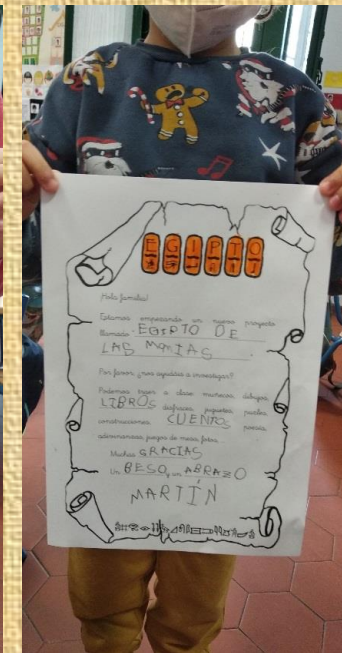 EGIPTO
¡Hola familia!
Estamos empezando un nuevo proyecto
llamado: EGIPTO DE
LAS MOMIAS.
Por favor, ¿nos ayudáis a investigar?
Podemos traer a clase: muñecos, dibujos,
LIBROS, disfraces, juguetes, puzles,
construcciones, CUENTOS, poesías,
adivinanzas, juegos de mesa, fotos...
Muchas GRACIAS
Un BESO y un ABRAZO
MARTÍN